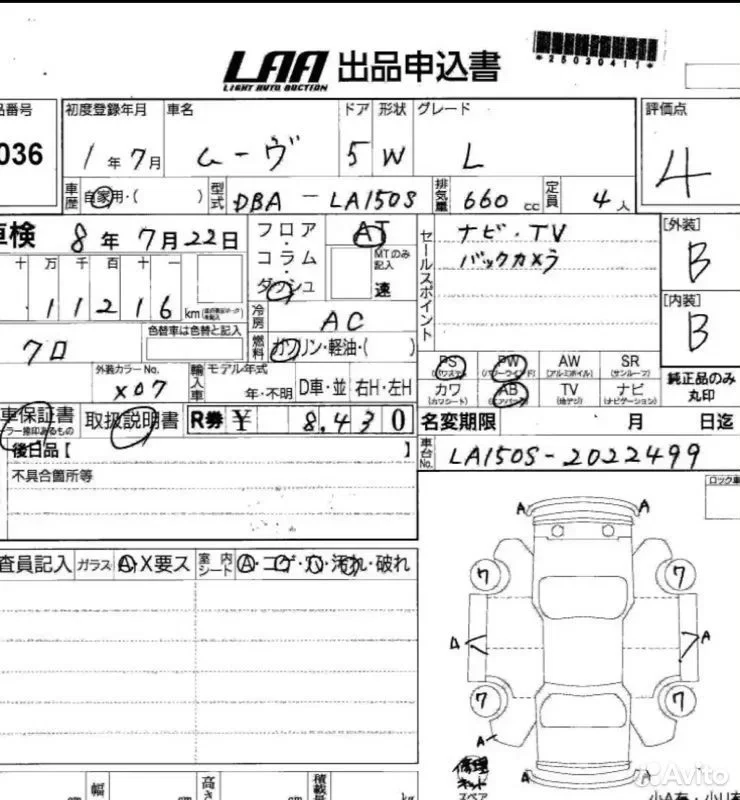 LAA 出品申込書
LIGHT AUTO AUCTION
*25030411*
品番号 初度登録年月 車名 ドア 形状 グレード 評価点
036 1年7月 ムーヴ 5 W L 4
車歴 自家用・( ) 型式 DBA-LA150S 排気量 660cc 定員 4人
車検 8年7月22日 フロア・コラム・ダッシュ AT MTのみ記入 速
セールスポイント ナビ・TV
バックカメラ
[外装] B
[内装] B
十万千百十一
11216 km
冷房 AC
色替車は色替と記入
クロ
燃料 ガソリン・軽油・( )
外装カラーNo. X07
輸入車 モデル年式 年・不明 D車・並 右H・左H
PS (パワステ) PW (パワーウインド) AW (アルミホイル) SR (サンルーフ)
カワ (カワシート) AB (エアバック) TV (地デジ) ナビ (ナビゲーション)
純正品のみ丸印
車保証書 取扱説明書 R券 ¥ 8,430
名変期限 月 日迄
後日品【 】
車台No. LA150S-2022499
不具合箇所等
ロック車
査員記入 ガラス A・X要ス 室内シート A・コゲ・穴・汚れ・破れ
A A
7 7
A A
7 7
A
修理キット
スペア
A A
幅 cm 高さ cm 積載量 kg
小A有・小U有
Avito